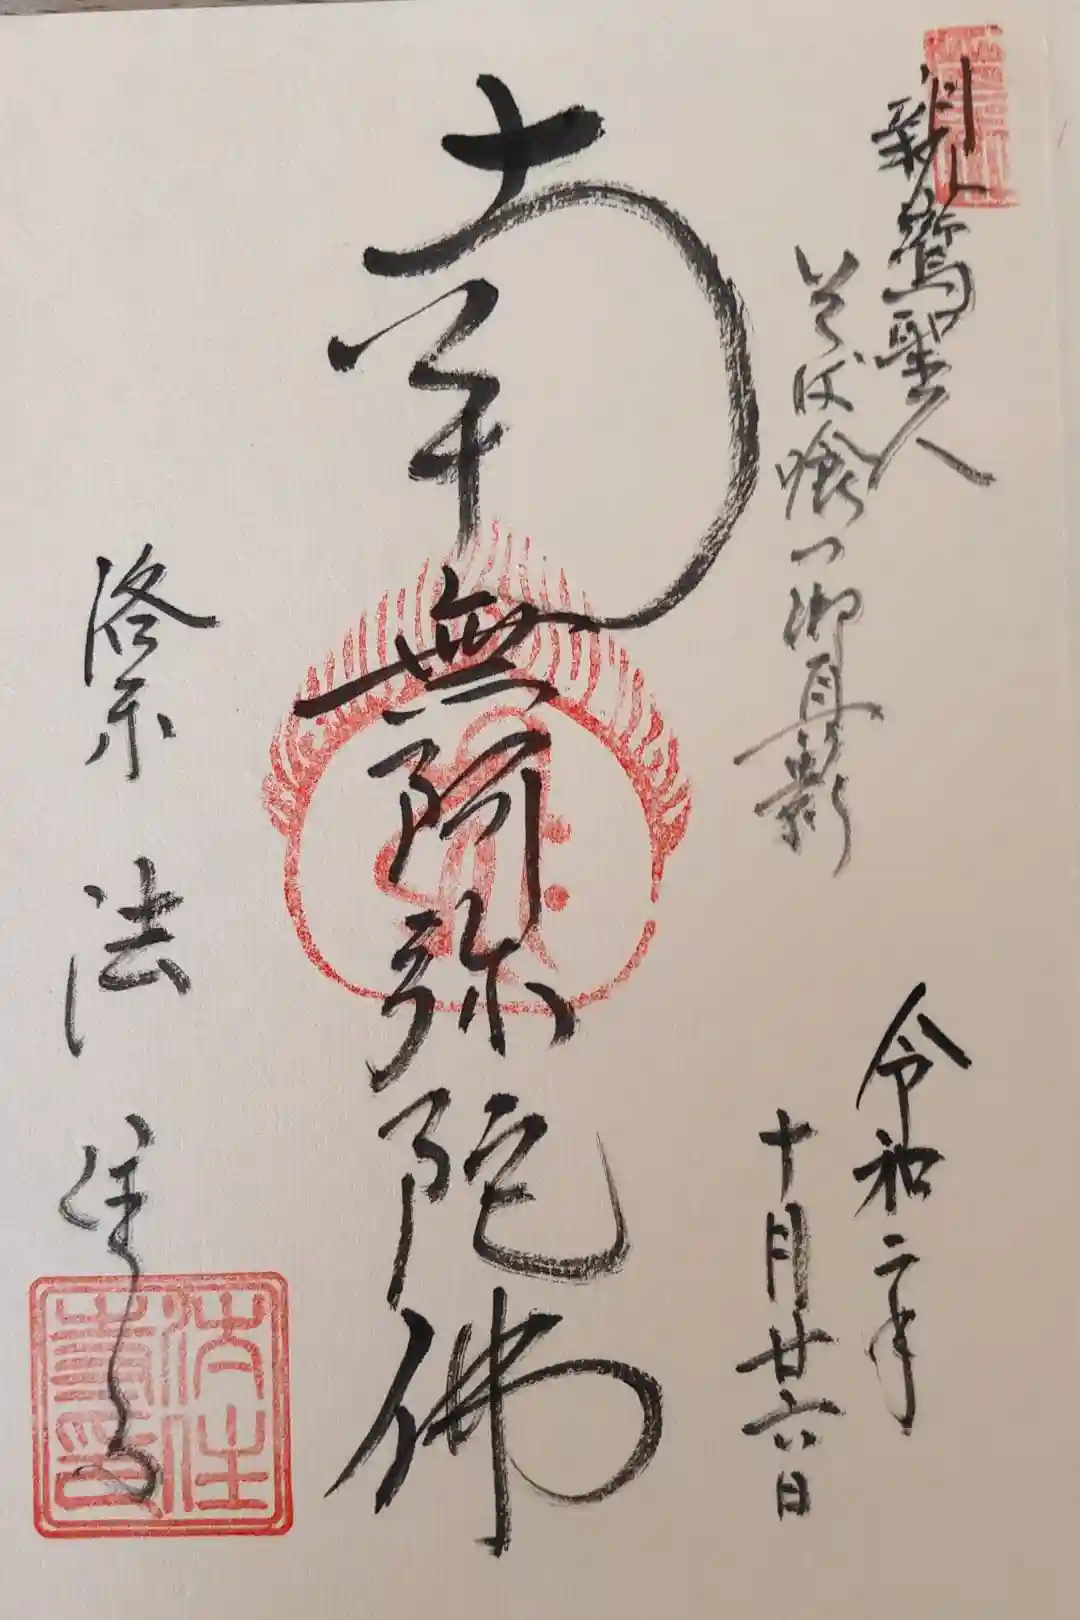 親鸞聖人
そば喰の御真影
令和二年
十月廿六日
南無阿弥陀佛
洛東 法住寺
法住寺印